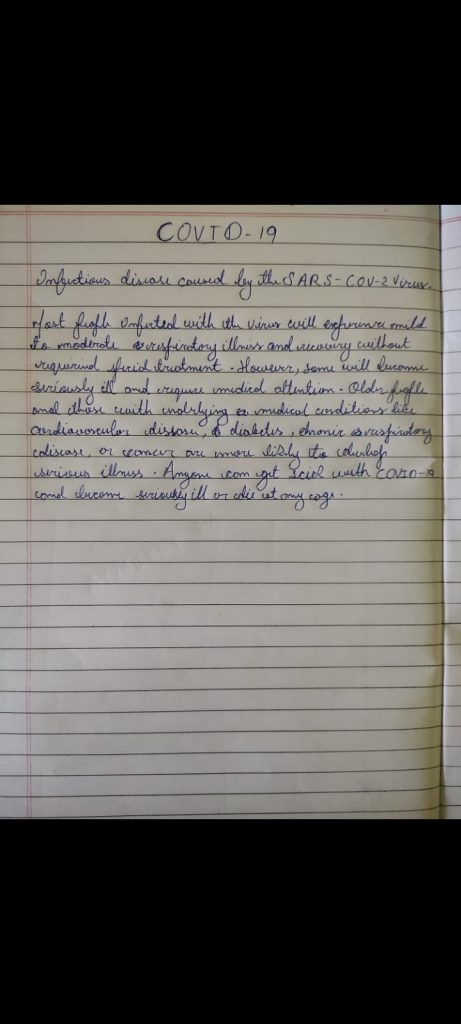 COVID-19
Infectious disease caused by the SARS-COV-2 Virus.
Most people infected with the virus will experience mild
to moderate respiratory illness and recovery without
requiring special treatment. However, some will become
seriously ill and require medical attention. Older people
and those with underlying medical conditions like
cardiovascular disease, diabetes, chronic respiratory
disease, or cancer are more likely to develop
serious illness. Anyone can get sick with COVID-19
and become seriously ill or die at any age.